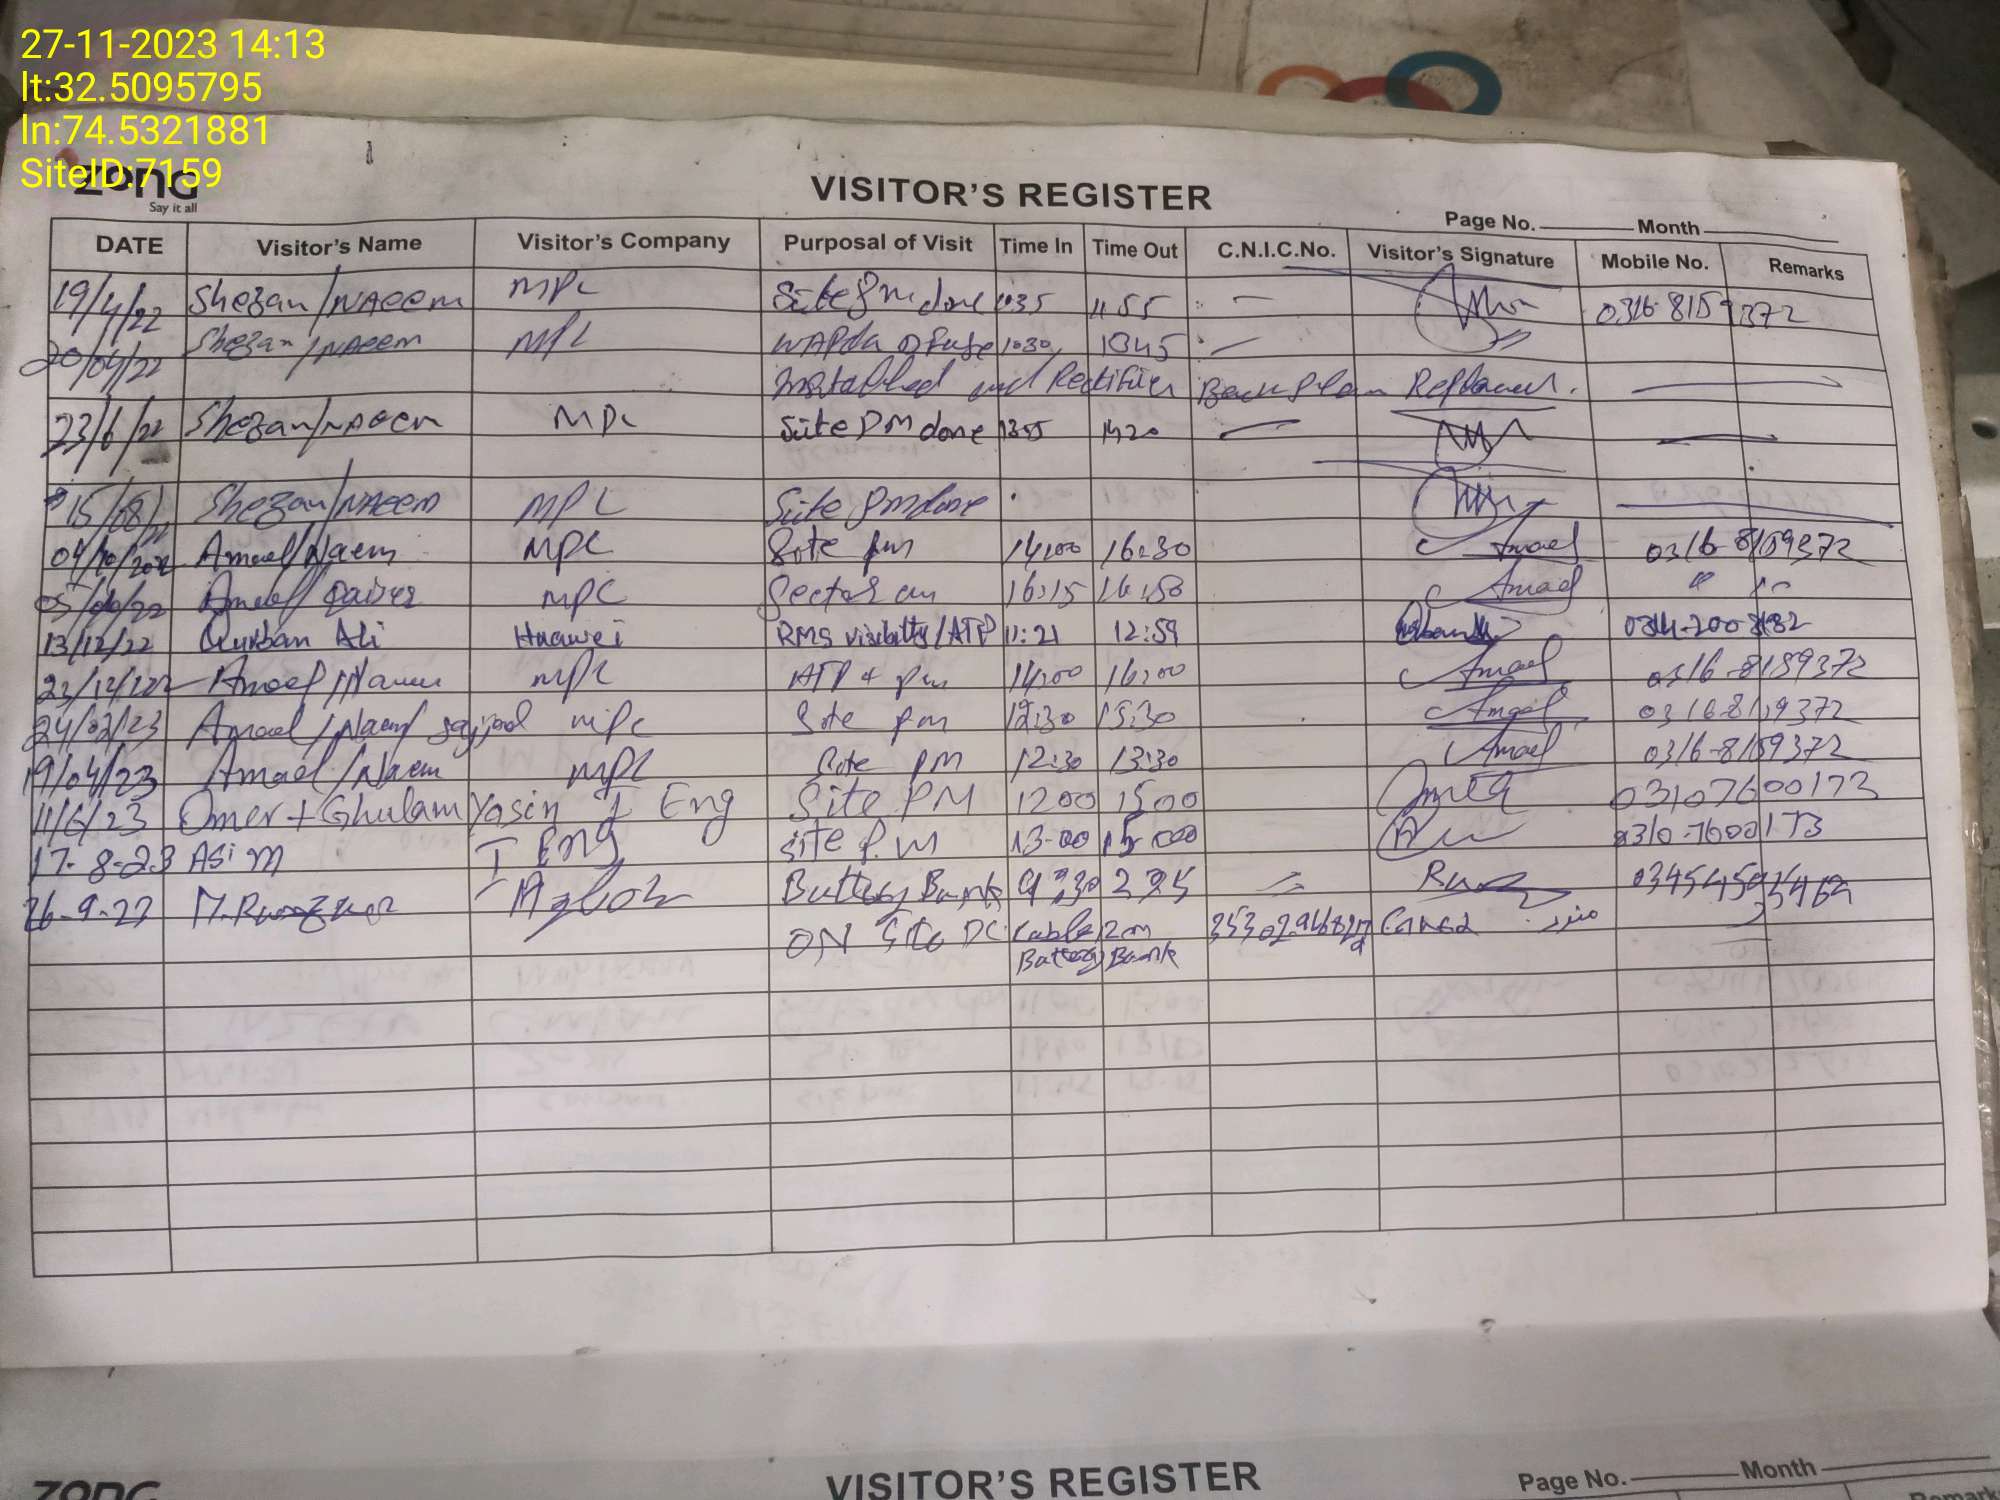 27-11-2023 14:13
lt:32.5095795
ln:74.5321881
SiteID:7159
zong
Say it all
VISITOR'S REGISTER
Page No. Month
DATE Visitor's Name Visitor's Company Purposal of Visit Time In Time Out C.N.I.C.No. Visitor's Signature Mobile No. Remarks
19/4/22 Shezan/NAEEM MPL Site Pm done 1035 1155 0316-8159372
20/04/22 Shezan/NAEEM MPL WAPda 1030 1045
Installed and Rectifier Back Plan Replaced.
23/6/22 Shezan/NAEEM MPL Site PM done 1355 1420
15/08/22 Shezan/NAEEM MPL Site Pm done
04/10/2022 Amael/Naem MPL Site pm 14:00 16:30 Amael 0316-8159372
Amael/Qaiser MPL Sector 16:15 16:50 Amael
13/12/22 Qurban Ali Huawei RMS visibility/ATP 11:21 12:59
23/12/22 Amael/Naem MPL ATP + pm 14:00 16:00 Amael 0316-8159372
24/02/23 Amael/Naem/Sajjad MPL Site pm 12:30 15:30 Amael 0316-8159372
19/04/23 Amael/Naem MPL Site PM 12:30 13:30 Amael 0316-8159372
11/6/23 Omer + Ghulam Yasin I Eng Site PM 1200 1500 Omer 03107600173
17-8-23 ASiM I ENG Site P.M 13-00 0310-7600173
26-9-23 Battery Bank 9:30
ON Site DC Cable 2cm
Battery Bank
VISITOR'S REGISTER
zong
Page No. Month
Remarks